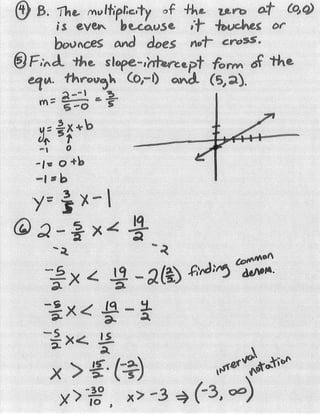 ④ B. The multiplicity of the zero at (0,0)
is even because it touches or
bounces and does not cross.
⑤ Find the slope-intercept form of the
equ. through (0,-1) and (5,2).
m = 2--1/5-0 = 3/5
y = 3/5 x + b
-1 0
-1 = 0 + b
-1 = b
y = 3/5 x - 1
⑥ 2 - 5/2 x < 19/2
-2 -2
-5/2 x < 19/2 - 2(2/2) finding common denom.
-5/2 x < 19/2 - 4/2
-5/2 x < 15/2
x > 15/2 · (-2/5)
x > -30/10, x > -3 ⇒ (-3, ∞) interval notation